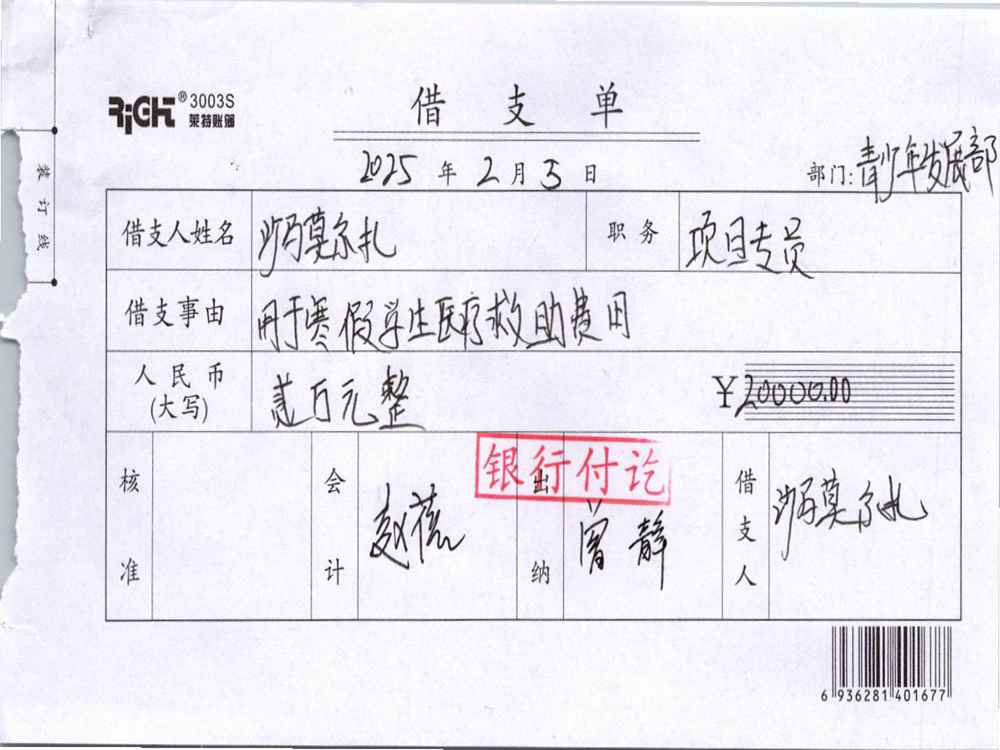 RiCHT®3003S
莱特账簿
借支单
2025年2月5日
部门:青少年发展部
装订线
借支人姓名 沙马莫尔扎 职务 项目专员
借支事由 用于寒假学生医疗救助费用
人民币(大写) 贰万元整 ¥20000.00
银行付讫
核准 会计 赵蓓 出纳 曾静 借支人 沙马莫尔扎
6 936281 401677